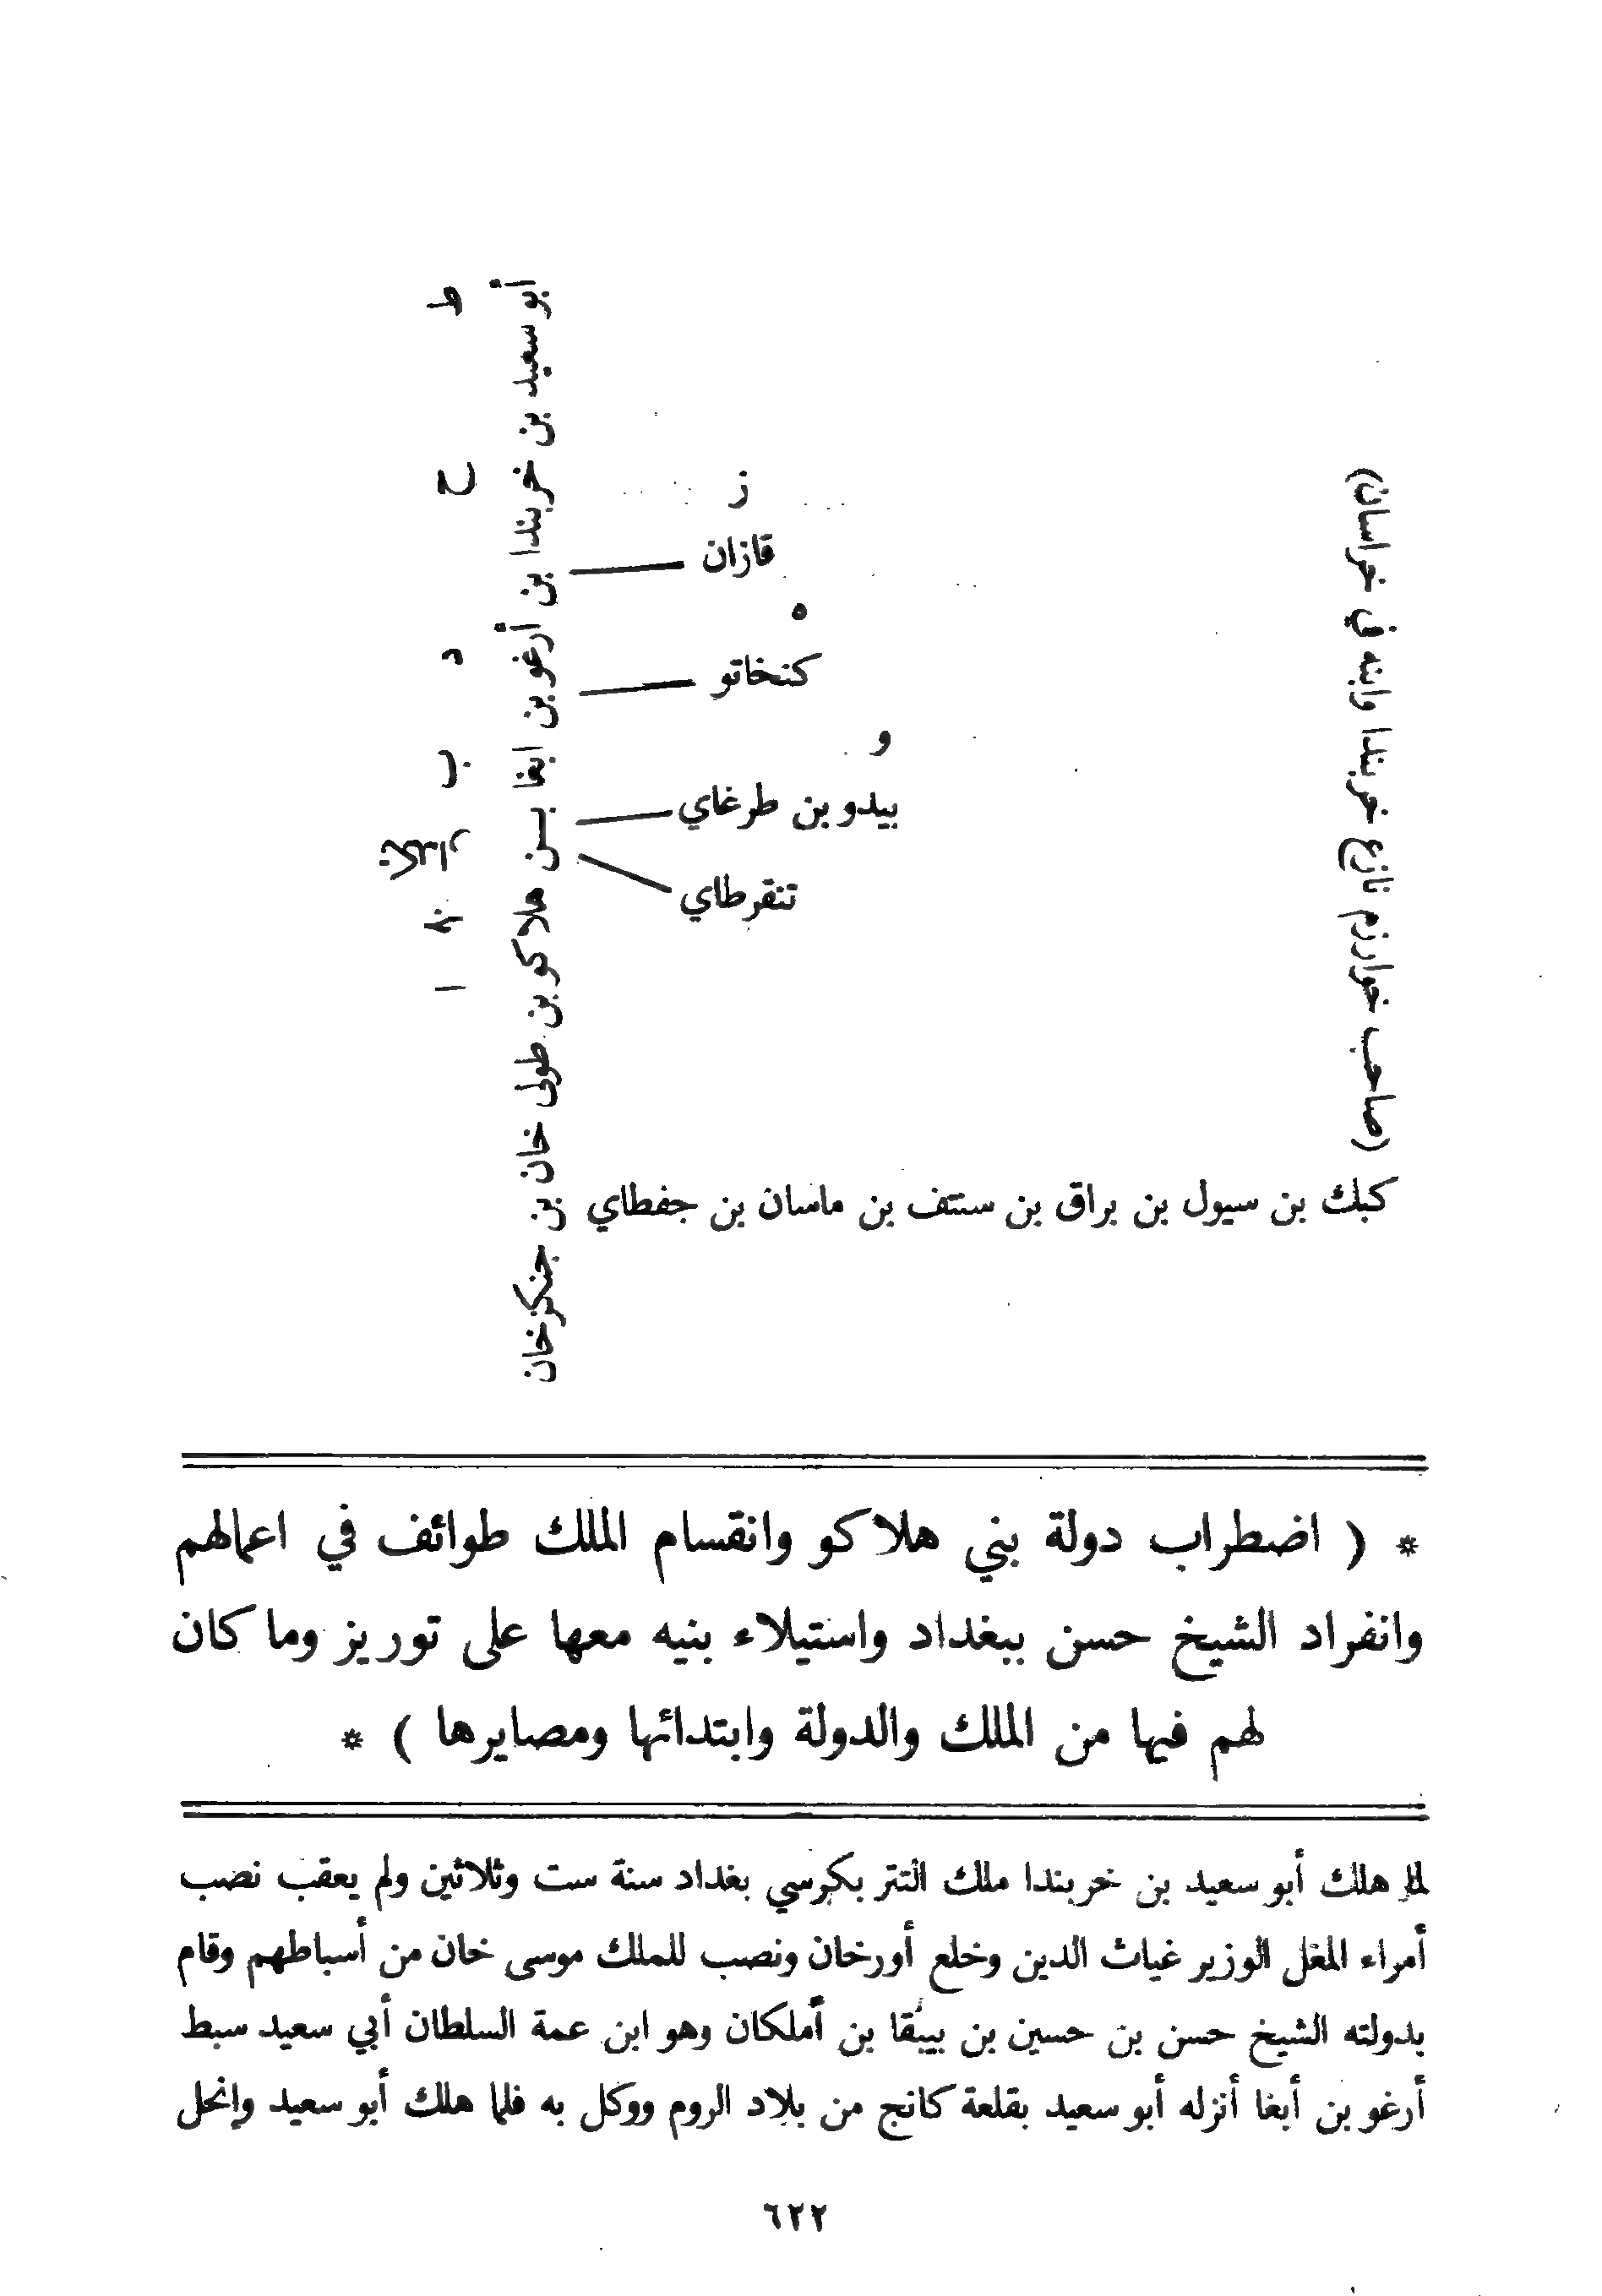 أبو سعيد بن خربندا بن أرغو بن ابغا بن هلاكو بن طولى خان بن جنكزخان
ط
ح
د
ب
ا
ز
قازان
ه
كنخاتو
و
بيدو بن طرغاي
تنقرطاي
(صاحب خوارزم نازع خربندا وابنه في خراسان)
كبك بن سيول بن براق بن سنتف بن ماسان بن جفطاي
* ( اضطراب دولة بني هلاكو وانقسام الملك طوائف في اعمالهم
وانفراد الشيخ حسن ببغداد واستيلاء بنيه معها على توريز وما كان
لهم فيها من الملك والدولة وابتدائها ومصايرها ) *
لما هلك أبو سعيد بن خربندا ملك التتر بكرسي بغداد سنة ست وثلاثين ولم يعقب نصب
أمراء المغل الوزير غياث الدين وخلع أورخان ونصب للملك موسى خان من أسباطهم وقام
بدولته الشيخ حسن بن حسين بن بيبقا بن أملكان وهو ابن عمة السلطان أبي سعيد سبط
أرغو بن أبغا أنزله أبو سعيد بقلعة كانج من بلاد الروم ووكل به فلما هلك أبو سعيد وإنحل
٦٢٢